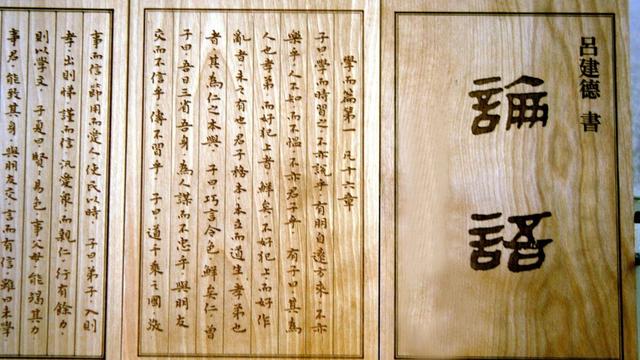 呂建德 書
論語
學而篇第一 凡十六章
子曰學而時習之不亦說乎 有朋自遠方來 不亦
樂乎 人不知而不慍 不亦君子乎 有子曰其為
人也孝弟而好犯上者 鮮矣不好犯上而好作
亂者未之有也君子務本本立而道生孝弟也
者其為仁之本與 子曰巧言令色 鮮矣仁 曾
子曰吾日三省吾身為人謀而不忠乎 與朋友
交而不信乎 傳不習乎 子曰道千乘之國 敬
事而信 節用而愛人 使民以時 子曰弟子入則
孝出則悌 謹而信 汎愛眾而親仁 行有餘力
則以學文 子夏曰賢〻易色 事父母能竭其力
事君能致其身 與朋友交言而有信 雖曰未學